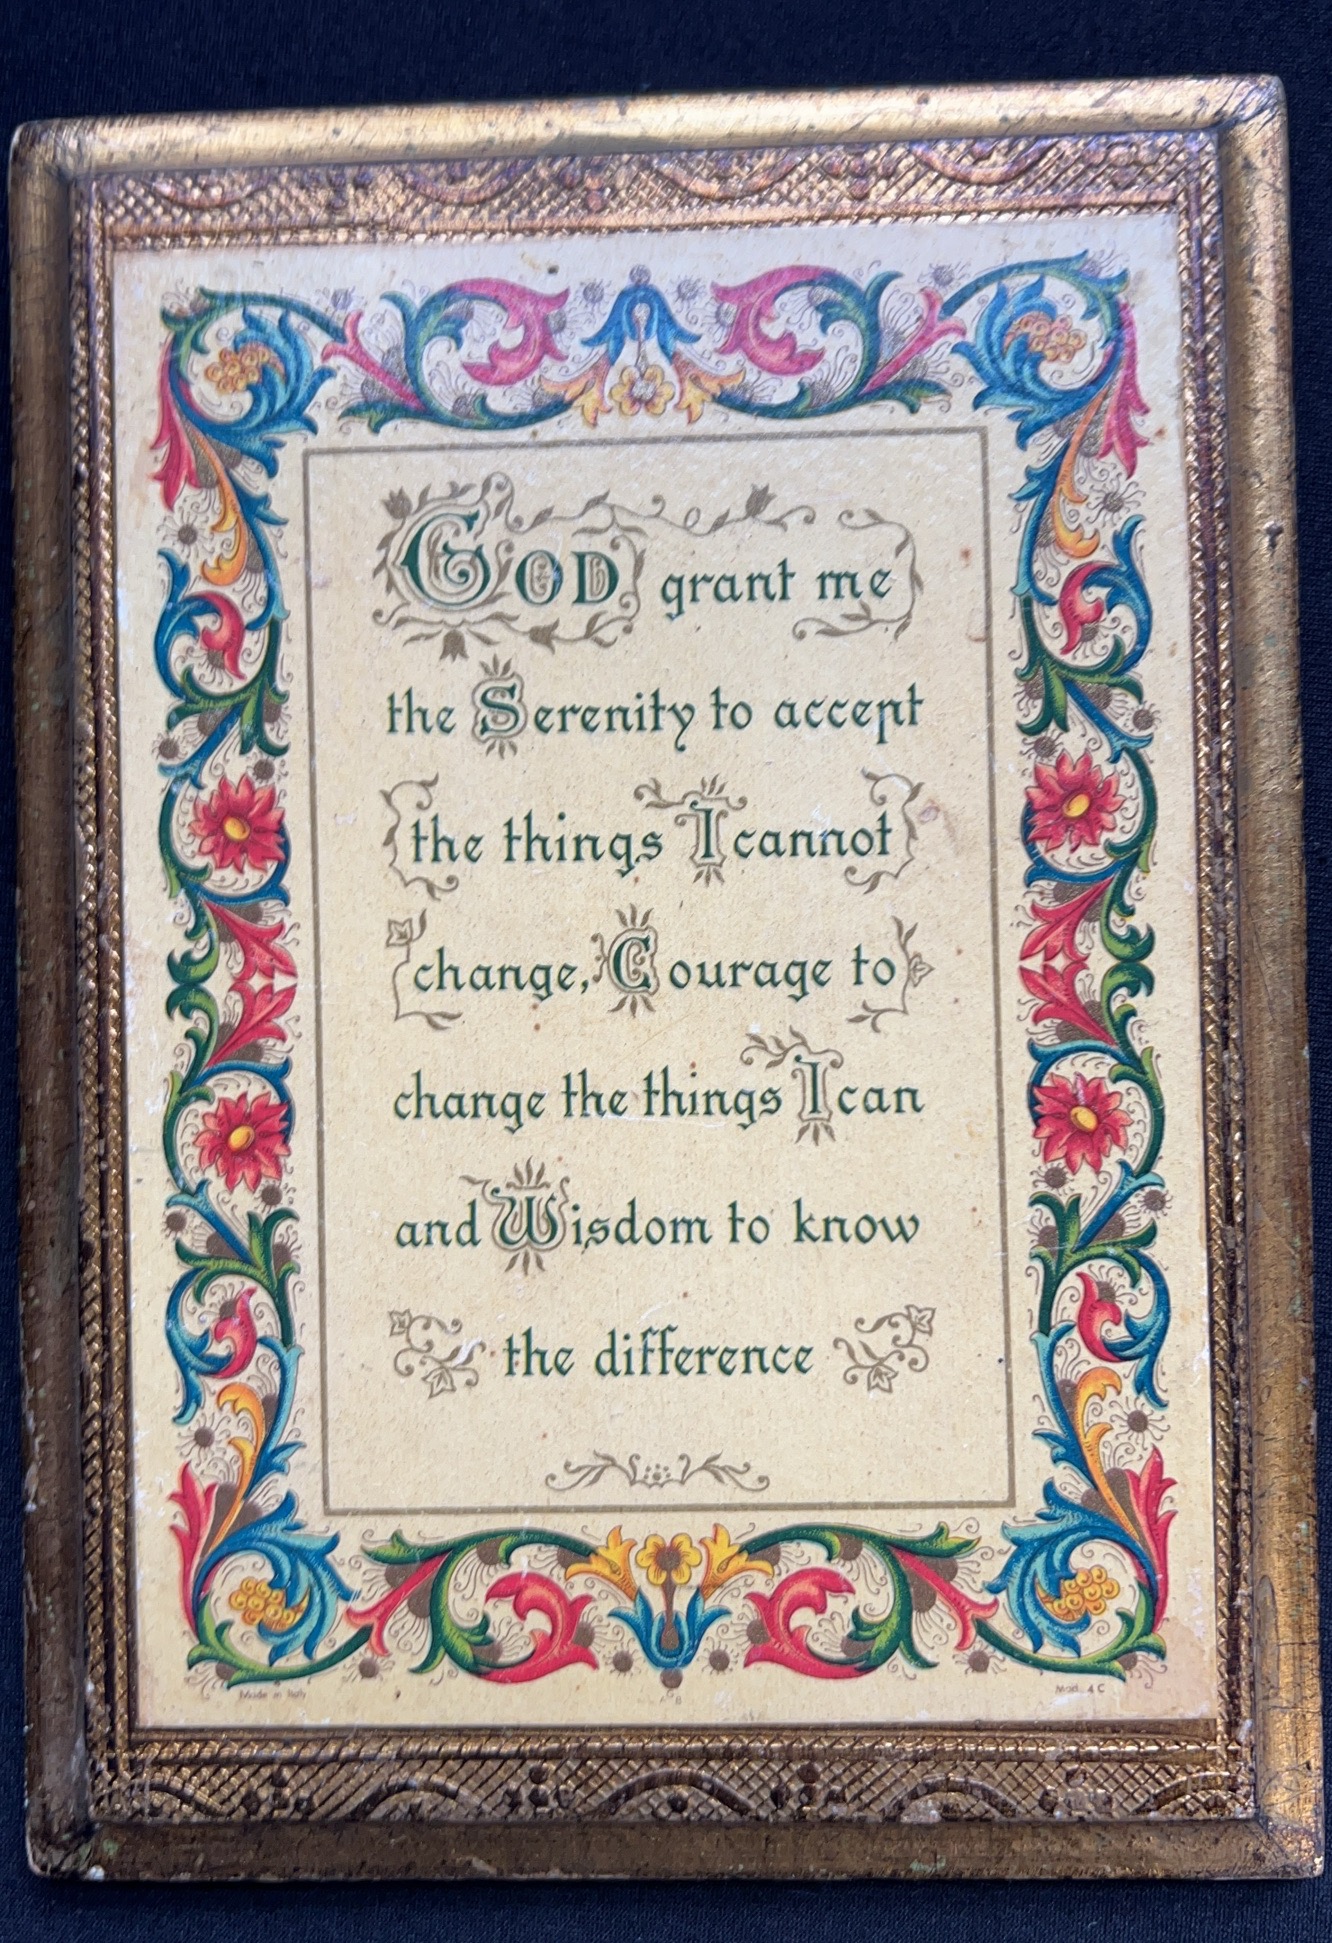 GOD grant me
the Serenity to accept
the things I cannot
change, Courage to
change the things I can
and Wisdom to know
the difference
Made in Italy
Mod. 4 C